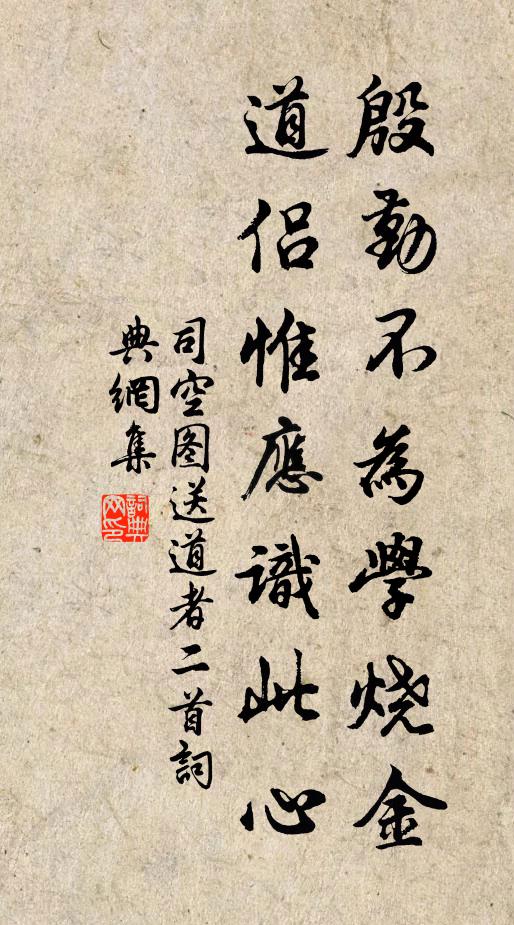 殷勤不為學烧金
道侣惟應識此心
司空图送道者二首詞
典網集
詞典网印